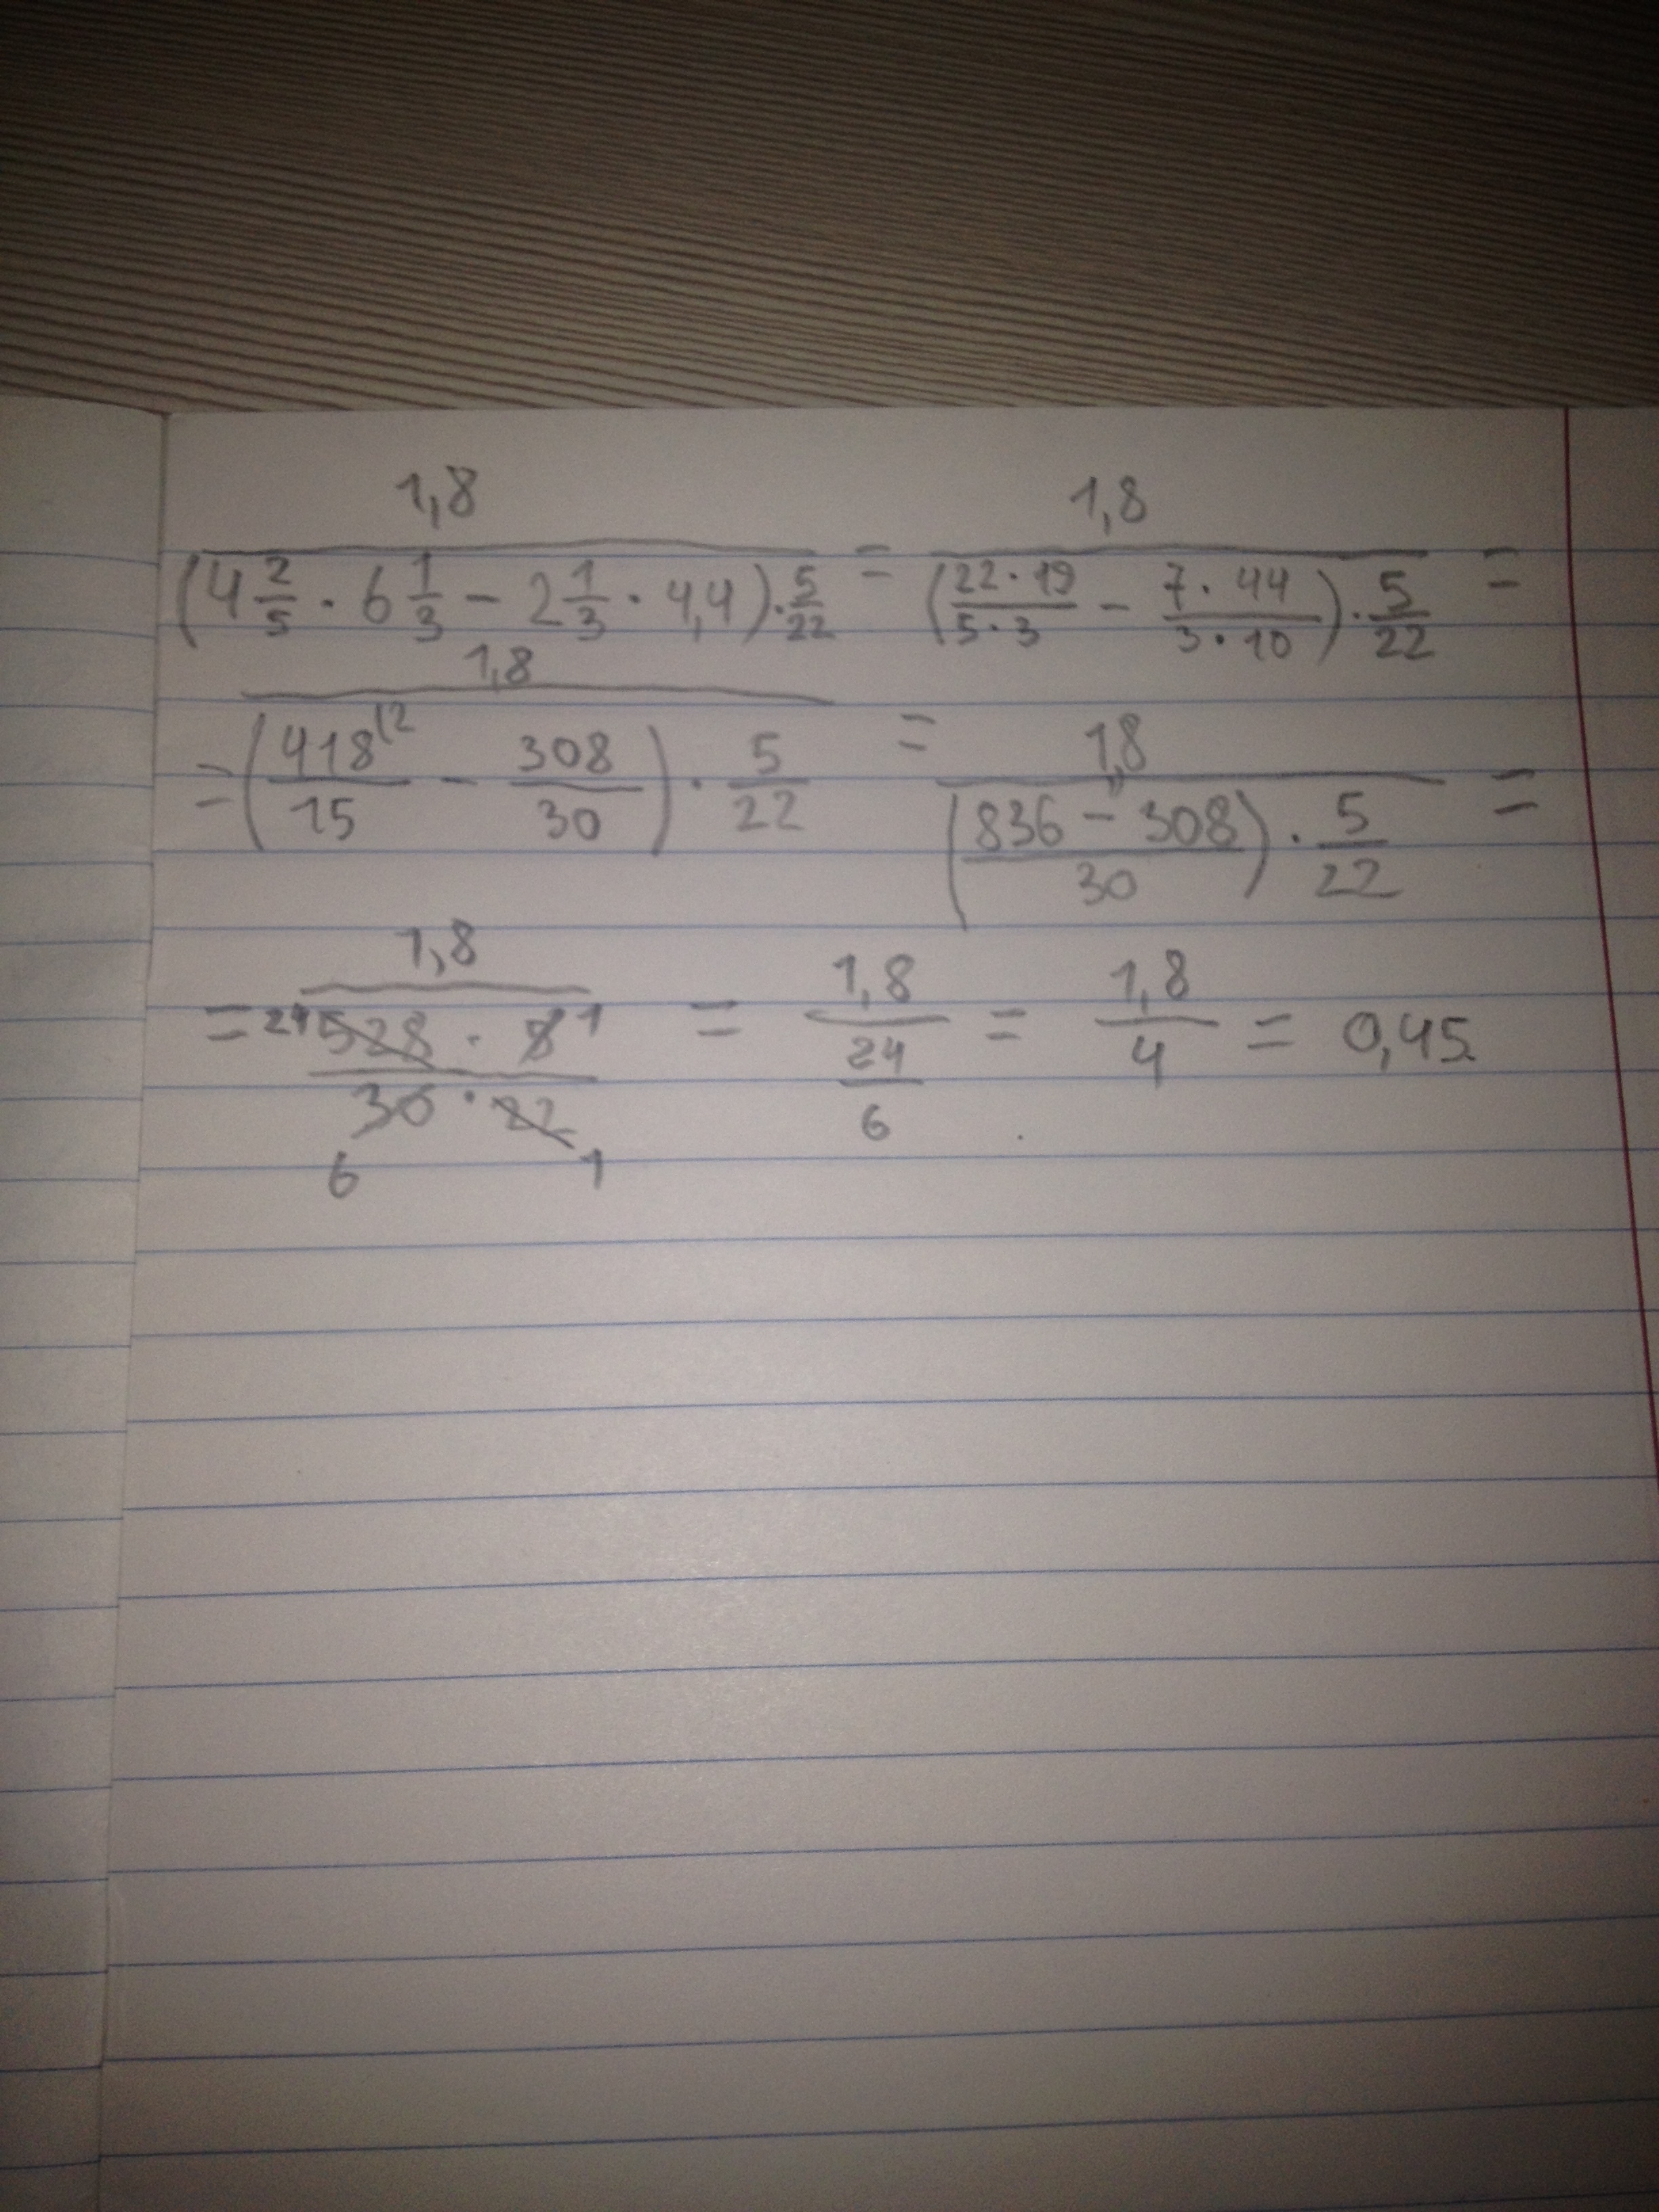 1,8 / ((4 2/5 · 6 1/3 - 2 1/3 · 4,4) · 5/22) = 1,8 / ((22 · 19 / 5 · 3 - 7 · 44 / 3 · 10) · 5/22) =
= 1,8 / ((418^(2 / 15 - 308 / 30) · 5/22) = 1,8 / ((836 - 308 / 30) · 5/22) =
= 1,8 / (24 528 · 5 1 / 30 6 · 22 1) = 1,8 / (24 / 6) = 1,8 / 4 = 0,45.